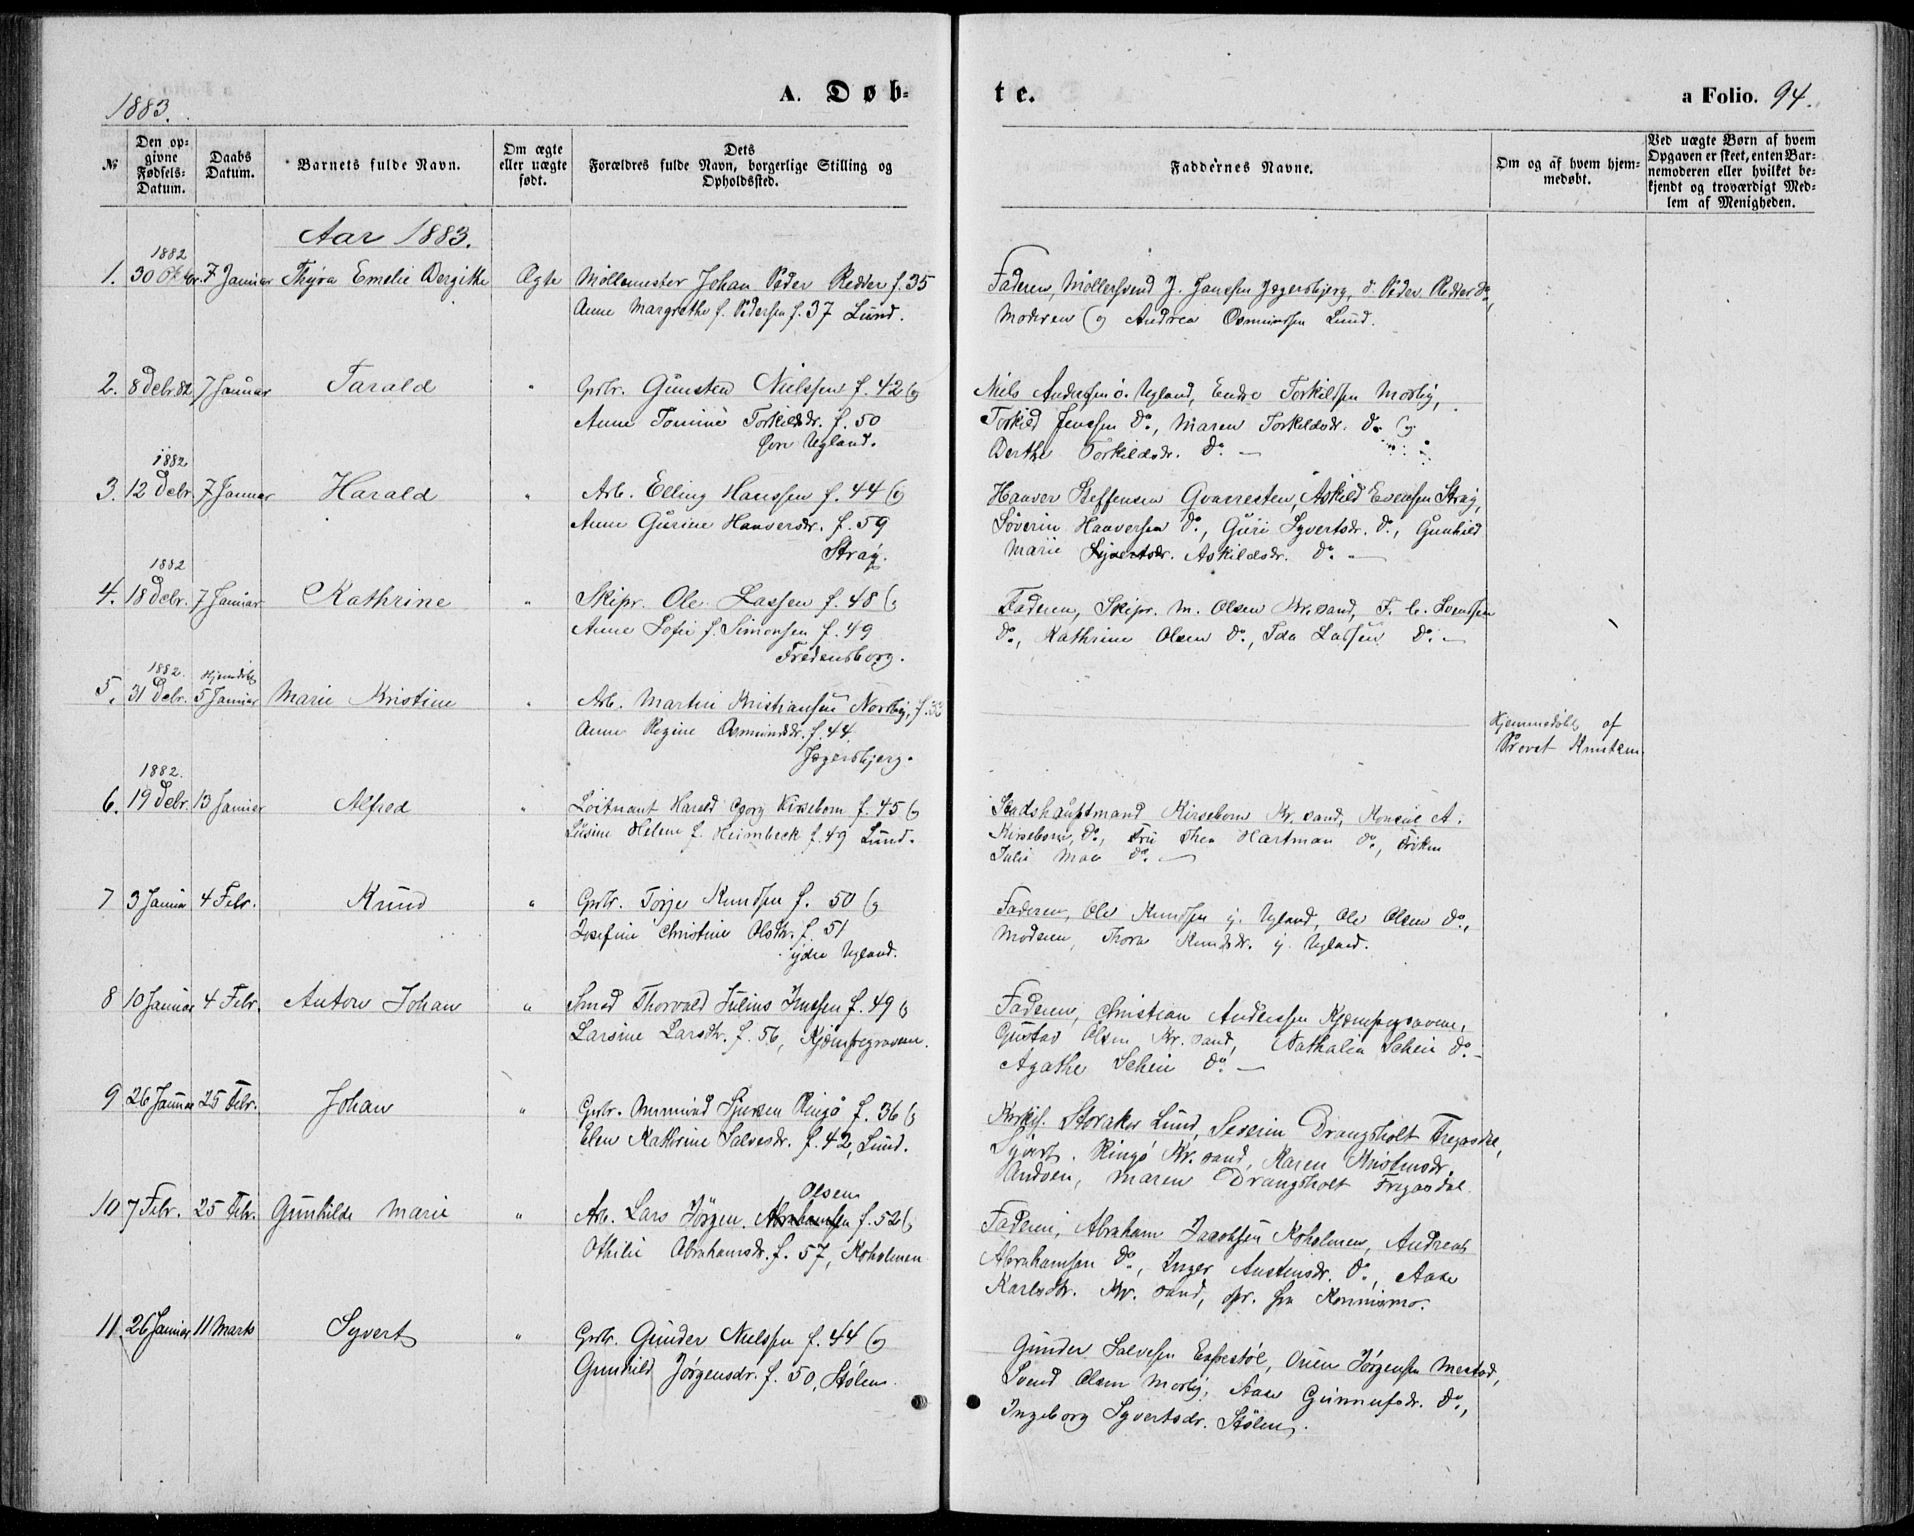 1883.
A. Døb-
te.
a Folio. 94.
№
Den op-
givne
Fødsels-
Datum.
Daabs
Datum.
Barnets fulde Navn.
Om ægte
eller uægte
født.
Dets
Forældres fulde Navn, borgerlige Stilling og
Opholdssted.
Faddernes Navne.
Om og af hvem hjem-
medøbt.
Ved uægte Børn af hvem
Opgaven er skeet, enten Bar-
nemoderen eller hvilket be-
kjendt og troværdigt Med-
lem af Menigheden.
Aar 1883.
1882
1. 30 Oktbr. 7 Januar Thyra Emelie Bergithe Ægte Møllemester Johan Peder Redder f. 35
Anne Margrethe f. Pedersen f. 37 Lund.
Faderen, Møllersvend J. Janssen Jægersbjerg, Peder Redder do,
Moderen og Andrea Osmundsen Lund.
2. 8 Debr 82 7 Januar Tarald " Gbr. Gunsten Nielssen f. 42 og
Anne Tomine Torkildsdr. f. 50
Øvre Ugland.
Niels Anderssen ø. Ugland, Endre Torkildsen Mosby,
Torkild Jenssen do., Maren Torkildsdr. do. og
Berthe Torkildsdr. do. —
1882
3. 12 Debr 7 Januar Harald " Arb. Elling Hanssen f. 44 og
Anne Gurine Haaversdr. f. 59
Stray.
Haaver Steffensen Qvarresten, Askild Evensen Stray,
Søverin Haaversen do., Guri Syvertsdr. do., Gunhild
Marie Syvertsdr. Askildsdr. do. —
1882
4. 18 Debr. 7 Januar Kathrine " Skipr. Ole Lassen f. 48 og
Anne Sofie f. Simonsen f. 49
Fredensborg.
Faderen, Skipr. M. Olsen Kr.sand, F. C. Svendsen
do., Kathrine Olsen do., Ida Lassen do. —
1882. Hjemdøbt
5. 31 Debr. 5 Januar Marie Kristine " Arb. Martin Kristiansen Nordby, f. 33
Anne Regine Osmundsdr. f. 44.
Jægersbjerg.
Hjemmedøbt af
Provst Knutzen
1882.
6. 19 Debr. 13 Januar Alfred " Løitnant Harald Georg Kirsebom f. 45 og
Lusine Helene f. Heimbeck f. 49 Lund.
Stadshauptmand Kirsebom Kr.sand, Konsul A.
Kirsebom, do., Fru Thea Hartman do., Frøken
Julie Moe do. —
7 3 Januar 4 Febr. Knud " Gbr. Torje Knudsen f. 50 og
Josefine Christine Olsdtr. f. 51
ydre Ugland.
Faderen, Ole Knudsen y. Ugland, Ole Olsen do.,
Moderen, Thora Knudsdr. y. Ugland.
8 10 Januar 4 Febr. Anton Johan " Smed Thorvald Julius Jenssen f. 49 og
Larsine Larsdtr. f. 56, Kjempegraven.
Faderen, Christian Anderssen Kjempegraven,
Gustav Olsen Kr.sand, Nathalia Schei do.
Agathe Schei do. —
9 26 Januar 25 Febr. Johan " Gbr. Ommund Syversen Ringø f. 36 og
Elen Kathrine Salvesdr. f. 42, Lund.
Kirkes. Storaker Lund, Severin Drangsholt Fregasdal,
Syvert Ringø Kr.sand, Karen Kristensdr.
Andøen, Maren Drangsholt Fregasdal.
Olsen
10 7 Febr. 25 Febr. Gunhilde Marie " Arb. Lars Jørgen Abrahamsen f. 52 og
Othilie Abrahamsdr. f. 57, Koholmen
Faderen, Abraham Jacobsen Koholmen, Andreas
Abrahamsen do., Inger Austensdr. do., Aase
Karlsdtr. Kr.sand, opr. fra Konnismo.
11. 26 Januar 11 Marts Syvert " Gbr. Gunder Nielssen f. 44 og
Gunhild Jørgensdr. f. 50, Stølen.
Gunder Salvesen Espestøl, Orien Jørgensen Mestad,
Svend Olsen Mosby, Aase Gunnufsdr. do.,
Ingeborg Syvertsdr. Stølen.